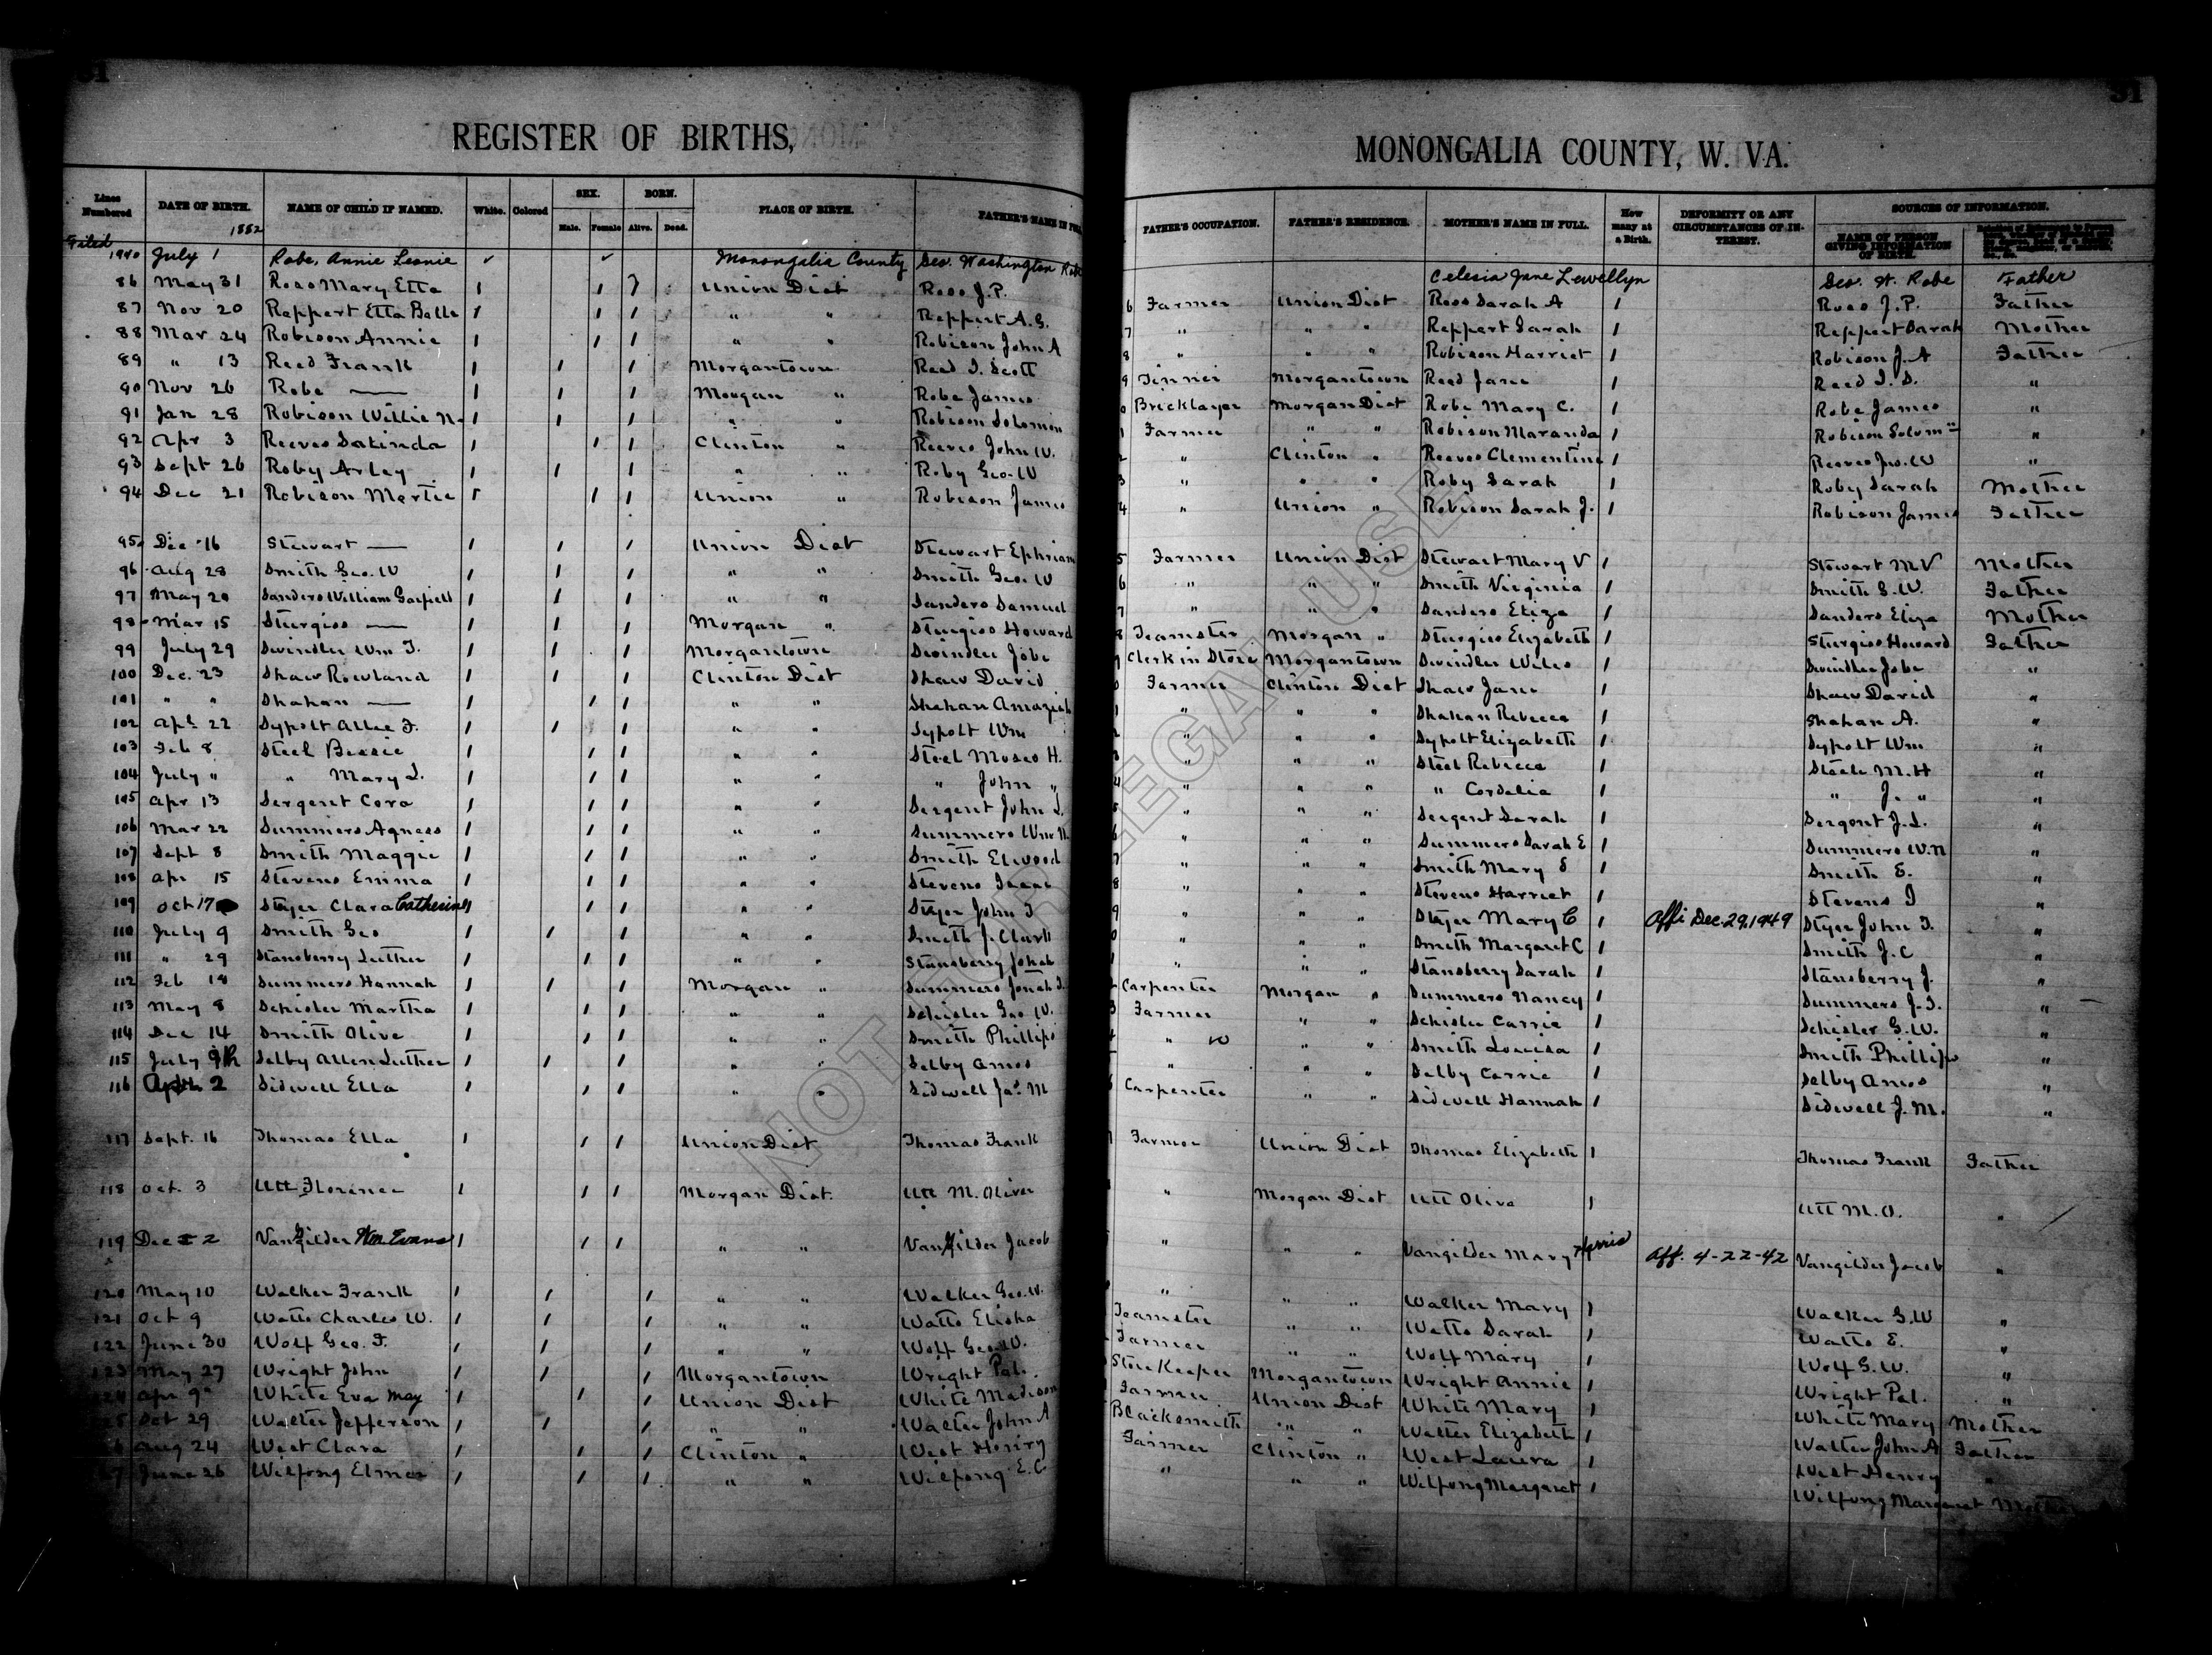 31 31
REGISTER OF BIRTHS, MONONGALIA COUNTY, W. VA.
Lines Numbered DATE OF BIRTH. 1882 NAME OF CHILD IF NAMED. White. Colored SEX. Male. Female BORN. Alive. Dead. PLACE OF BIRTH. FATHER'S NAME IN FULL FATHER'S OCCUPATION. FATHER'S RESIDENCE. MOTHER'S NAME IN FULL. How many at a Birth. DEFORMITY OR ANY CIRCUMSTANCES OF INTEREST. SOURCES OF INFORMATION. NAME OF PERSON GIVING INFORMATION OF BIRTH.
Filed 1940 July 1 Robe, Annie Leonie ✓ ✓ Monongalia County Geo. Washington Robe Celesia Jane Lewellyn Geo. W. Robe Father
86 May 31 Ross Mary Etta 1 1 1 Union Dist Ross J.P. Farmer Union Dist Ross Sarah A 1 Ross J.P. Father
87 Nov 20 Reppert Etta Belle 1 1 1 " " Reppert A.G. " " " Reppert Sarah 1 Reppert Sarah Mother
88 Mar 24 Robison Annie 1 1 1 " " Robison John A " " " Robison Harriet 1 Robison J.A Father
89 " 13 Reed Frank 1 1 1 Morgantown Reed I. Scott Tinner Morgantown Reed Jane 1 Reed I.S. "
90 Nov 26 Robe — 1 1 1 Morgan " Robe James Bricklayer Morgan Dist Robe Mary C. 1 Robe James "
91 Jan 28 Robison Willie N. 1 1 1 " " Robison Solomon Farmer " " Robison Maranda 1 Robison Solomon "
92 Apr 3 Reeves Satinda 1 1 1 Clinton " Reeves John W. " Clinton " Reeves Clementine 1 Reeves Jno. W "
93 Sept 26 Roby Arley 1 1 1 " " Roby Geo. W " " " Roby Sarah 1 Roby Sarah Mother
94 Dec 21 Robison Mertie 1 1 1 Union " Robison James " Union " Robison Sarah J. 1 Robison James Father
95 Dec 16 Stewart — 1 1 1 Union Dist Stewart Ephriam Farmer Union Dist Stewart Mary V 1 Stewart M V Mother
96 Aug 28 Smith Geo. W 1 1 1 " " Smith Geo. W " " " Smith Virginia 1 Smith G.W. Father
97 May 20 Sanders William Garfield 1 1 1 " " Sanders Samuel " " " Sanders Eliza 1 Sanders Eliza Mother
98 Mar 15 Sturgiss — 1 1 1 Morgan " Sturgiss Howard Teamster Morgan " Sturgiss Elizabeth 1 Sturgiss Howard Father
99 July 29 Swindler Wm T. 1 1 1 Morgantown Swindler Jobe Clerk in Store Morgantown Swindler 1 Swindler Jobe "
100 Dec. 23 Shaw Rowland 1 1 1 Clinton Dist Shaw David Farmer Clinton Dist Shaw Jane 1 Shaw David "
101 " " Shahan — 1 1 1 " " Shahan Amaziah " " " Shahan Rebecca 1 Shahan A. "
102 Apl 22 Sypolt Allie F. 1 1 1 " " Sypolt Wm " " " Sypolt Elizabeth 1 Sypolt Wm "
103 Feb 8 Steel Bessie 1 1 1 " " Steel Moses H. " " " Steel Rebecca 1 Steele M.H "
104 July " " Mary L. 1 1 1 " " " John " " " " " Cordelia 1 " J. " "
105 Apr 13 Sergent Cora 1 1 1 " " Sergent John L. " " " Sergent Sarah 1 Sergent J.L. "
106 Mar 22 Summers Agness 1 1 1 " " Summers Wm N. " " " Summers Sarah E 1 Summers W.N "
107 Sept 8 Smith Maggie 1 1 1 " " Smith Elwood " " " Smith Mary S 1 Smith E. "
108 Apr 15 Stevens Emma 1 1 1 " " Stevens Isaac " " " Stevens Harriet 1 Stevens I "
109 Oct 17 Steyer Clara Catherine 1 1 1 " " Steyer John T " " " Steyer Mary C 1 Affi Dec. 29, 1949 Steyer John T. "
110 July 9 Smith Geo 1 1 1 " " Smith J. Clark " " " Smith Margaret C 1 Smith J.C "
111 " 29 Stansberry Luther 1 1 1 " " Stansberry Jonah " " " Stansberry Sarah 1 Stansberry J. "
112 Feb 18 Summers Hannah 1 1 1 Morgan " Summers Jonah T. Carpenter Morgan " Summers Nancy 1 Summers J.T. "
113 May 8 Schisler Martha 1 1 1 " " Schisler Geo W. Farmer " " Schisler Carrie 1 Schisler G.W. "
114 Dec 14 Smith Olive 1 1 1 " " Smith Phillips " " " Smith Louisa 1 Smith Phillips "
115 July 9th Selby Allen Luther 1 1 1 " " Selby Amos " " " Selby Carrie 1 Selby Amos "
116 2 Sidwell Ella 1 1 1 " " Sidwell Jas. M Carpenter " " Sidwell Hannah 1 Sidwell J.M. "
117 Sept. 16 Thomas Ella 1 1 1 Union Dist Thomas Frank Farmer Union Dist Thomas Elizabeth 1 Thomas Frank Father
118 Oct. 3 Utt Florence 1 1 1 Morgan Dist. Utt M. Oliver " Morgan Dist Utt Olive 1 Utt M.O. "
119 Dec 2 VanGilder Wm. Evans 1 1 1 " " VanGilder Jacob " " " Vangilder Mary Aff. 4-22-42 Vangilder Jacob "
120 May 10 Walker Frank 1 1 1 " " Walker Geo. W. " " " Walker Mary 1 Walker G.W "
121 Oct 9 Watts Charles W. 1 1 1 " " Watts Elisha Teamster " " Watts Sarah 1 Watts E. "
122 June 30 Wolf Geo. F. 1 1 1 " " Wolf Geo. W. Farmer " " Wolf Mary 1 Wolf G.W. "
123 May 27 Wright John 1 1 1 Morgantown Wright Pal. Store Keeper Morgantown Wright Annie 1 Wright Pal. "
124 Apr 9 White Eva May 1 1 1 Union Dist White Madison Farmer Union Dist White Mary 1 White Mary Mother
125 Oct 29 Walter Jefferson 1 1 1 " " Walter John A Blacksmith " " Walter Elizabeth 1 Walter John A Father
126 Aug 24 West Clara 1 1 1 Clinton " West Henry Farmer Clinton " West Laura 1 West Henry "
127 June 26 Wilfong Elmer 1 1 1 " " Wilfong E.C " " " Wilfong Margaret 1 Wilfong Margaret Mother
NOT FOR LEGAL USE